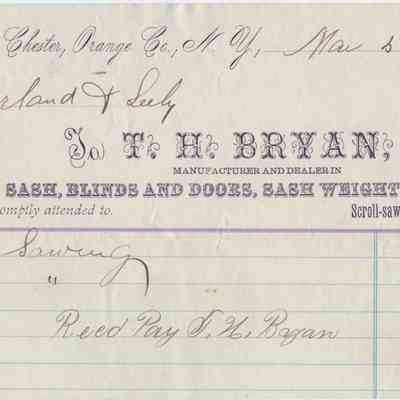 Chester, Orange Co., N. Y., Mar
rland & Seely
To T. H. BRYAN,
MANUFACTURER AND DEALER IN
SASH, BLINDS AND DOORS, SASH WEIGHT
omptly attended to. Scroll-saw
Sawing
"
Recd Pay T. H. Bryan